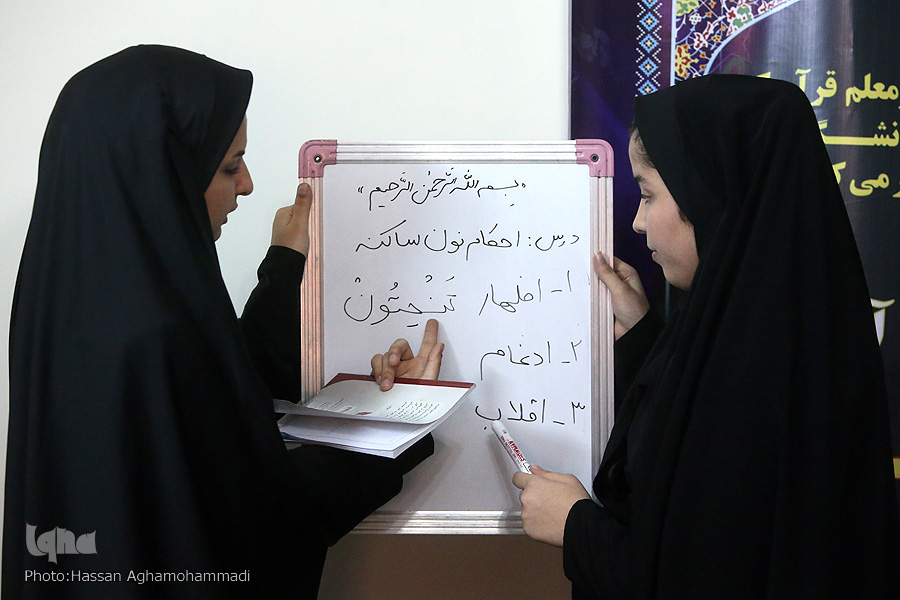 «بسم الله الرّحمن الرّحیم»
درس: احکام نون ساکنه
۱- اظهار تَنْحِتُونَ
۲- ادغام
۳- اقلاب
معلم قرآن
iqna
Photo:Hassan Aghamohammadi